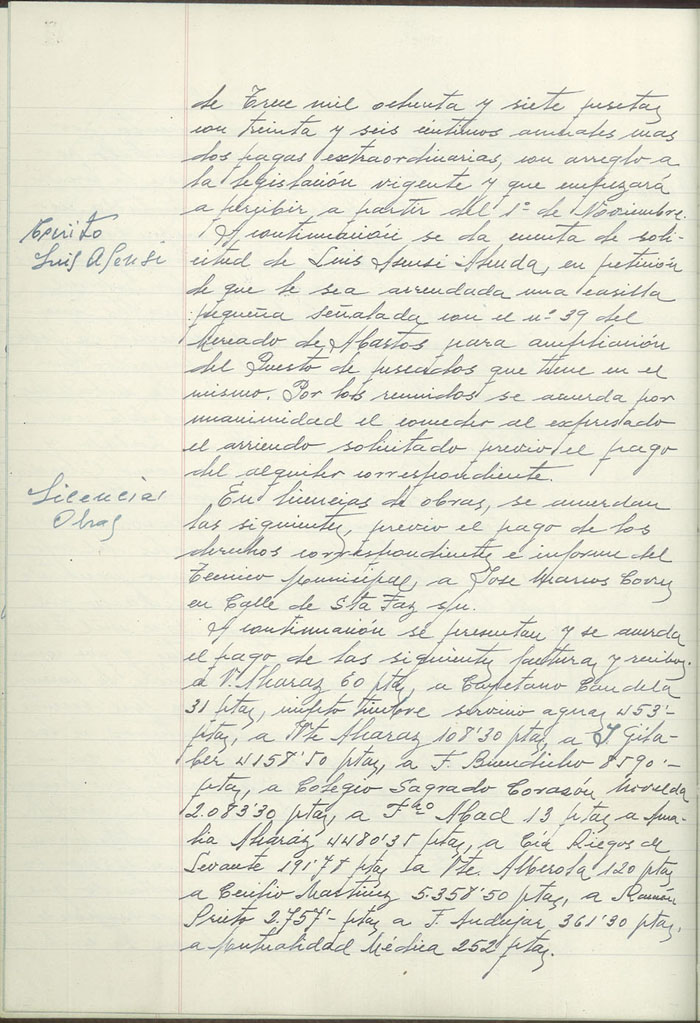 de Trece mil ochenta y siete pesetas
con treinta y seis céntimos anuales mas
dos pagas extraordinarias, con arreglo a
la legislación vigente y que empezará
a percibir a partir del 1º de Noviembre.
Escrito
Luis Asensi
A continuación se da cuenta de soli-
citud de Luis Asensi, en petición
de que le sea arrendada una casilla
pequeña señalada con el nº 39 del
Mercado de Abastos para ampliación
del Puesto de pescados que tiene en el
mismo. Por los reunidos se acuerda por
unanimidad el conceder al expresado
el arriendo solicitado previo el pago
del alquiler correspondiente.
Licencias
Obras
En licencias de obras, se acuerdan
las siguientes, previo el pago de los
derechos correspondientes e informe del
Tecnico Municipal, a Jose Marcos
en Calle de Sta Faz s/n.
A continuación se presentan y se acuerda
el pago de las siguientes facturas y recibos.
a V. Alcaraz 60 ptas, a Cayetano Candela
31 ptas, timbre servicio aguas 453'-
ptas, a Vte Alcaraz 108'30 ptas, a J. Gila-
ber 4158'50 ptas, a F. Buendicho 8590'-
ptas, a Colegio Sagrado Corazón Novelda
2.083'30 ptas, a Fco Abad 13 ptas a Ama-
lia Alcaráz 4480'35 ptas, a Cía Riegos de
Levante 191'78 ptas a Vte. Alberola 120 ptas
a Cecilio Martínez 5.358'50 ptas, a Ramón
Prieto 2.757'- ptas a F. Andujar 361'30 ptas,
a Mutualidad Médica 252 ptas.